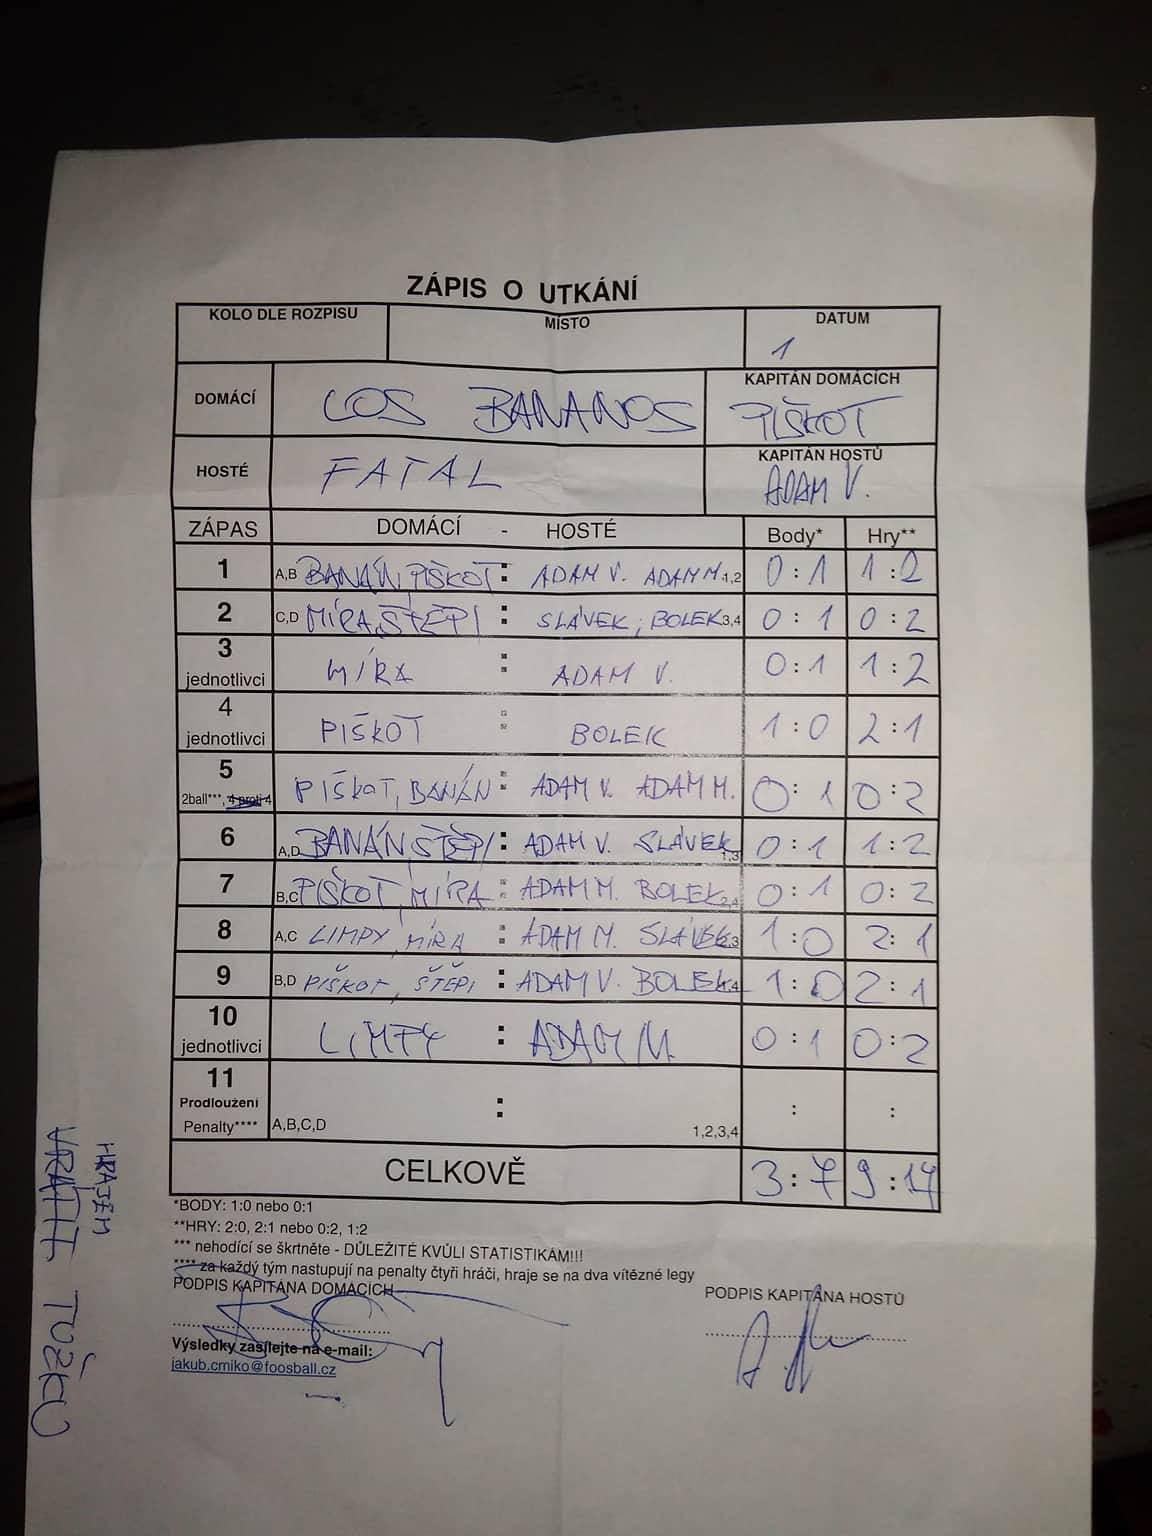 ZÁPIS O UTKÁNÍ
KOLO DLE ROZPISU MÍSTO DATUM
1
DOMÁCÍ LOS BANANOS KAPITÁN DOMÁCÍCH
PIŠKOT
HOSTÉ FATAL KAPITÁN HOSTŮ
ADAM V.
ZÁPAS DOMÁCÍ - HOSTÉ Body* Hry**
1 A,B BANÁN, PIŠKOT : ADAM V. ADAM M. 1,2 0:1 1:2
2 C,D MÍRA, ŠTĚPI : SLÁVEK, BOLEK 3,4 0:1 0:2
3 jednotlivci MÍRA : ADAM V. 0:1 1:2
4 jednotlivci PIŠKOT : BOLEK 1:0 2:1
5 2ball***, 4 proti 4 PIŠKOT, BANÁN : ADAM V. ADAM M. 0:1 0:2
6 A,D BANÁN, ŠTĚPI : ADAM V. SLÁVEK 1,3 0:1 1:2
7 B,C PIŠKOT, MÍRA : ADAM M. BOLEK 2,4 0:1 0:2
8 A,C LIMPY, MÍRA : ADAM M. SLÁVEK 2,3 1:0 2:1
9 B,D PIŠKOT, ŠTĚPI : ADAM V. BOLEK 1,4 1:0 2:1
10 jednotlivci LIMPY : ADAM M. 0:1 0:2
11 Prodloužení : : :
Penalty**** A,B,C,D 1,2,3,4
CELKOVĚ 3:7 9:17
*BODY: 1:0 nebo 0:1
**HRY: 2:0, 2:1 nebo 0:2, 1:2
*** nehodící se škrtněte - DŮLEŽITÉ KVŮLI STATISTIKÁM!!!
**** za každý tým nastupují na penalty čtyři hráči, hraje se na dva vítězné legy
PODPIS KAPITÁNA DOMÁCÍCH PODPIS KAPITÁNA HOSTŮ
Výsledky zasílejte na e-mail:
jakub.cmiko@foosball.cz
HRAJEM
VRÁTIT TUŽKU